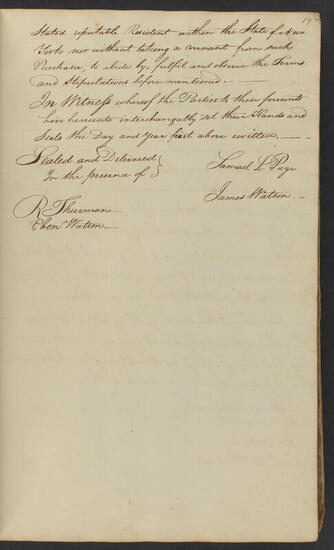 Stated reputable Resident within the State of New
York nor without taking a covenant from such
Purchaser, to abide by, fulfil and observe the Terms
and Stipulations before mentioned. —
In Witness whereof the Parties to these presents
have hereunto interchangeably set their Hands and
Seals the Day and Year first above written. —
Sealed and Delivered
In the presence of
Samuel L Page
James Watson. —
R Thurman
Eben Watson